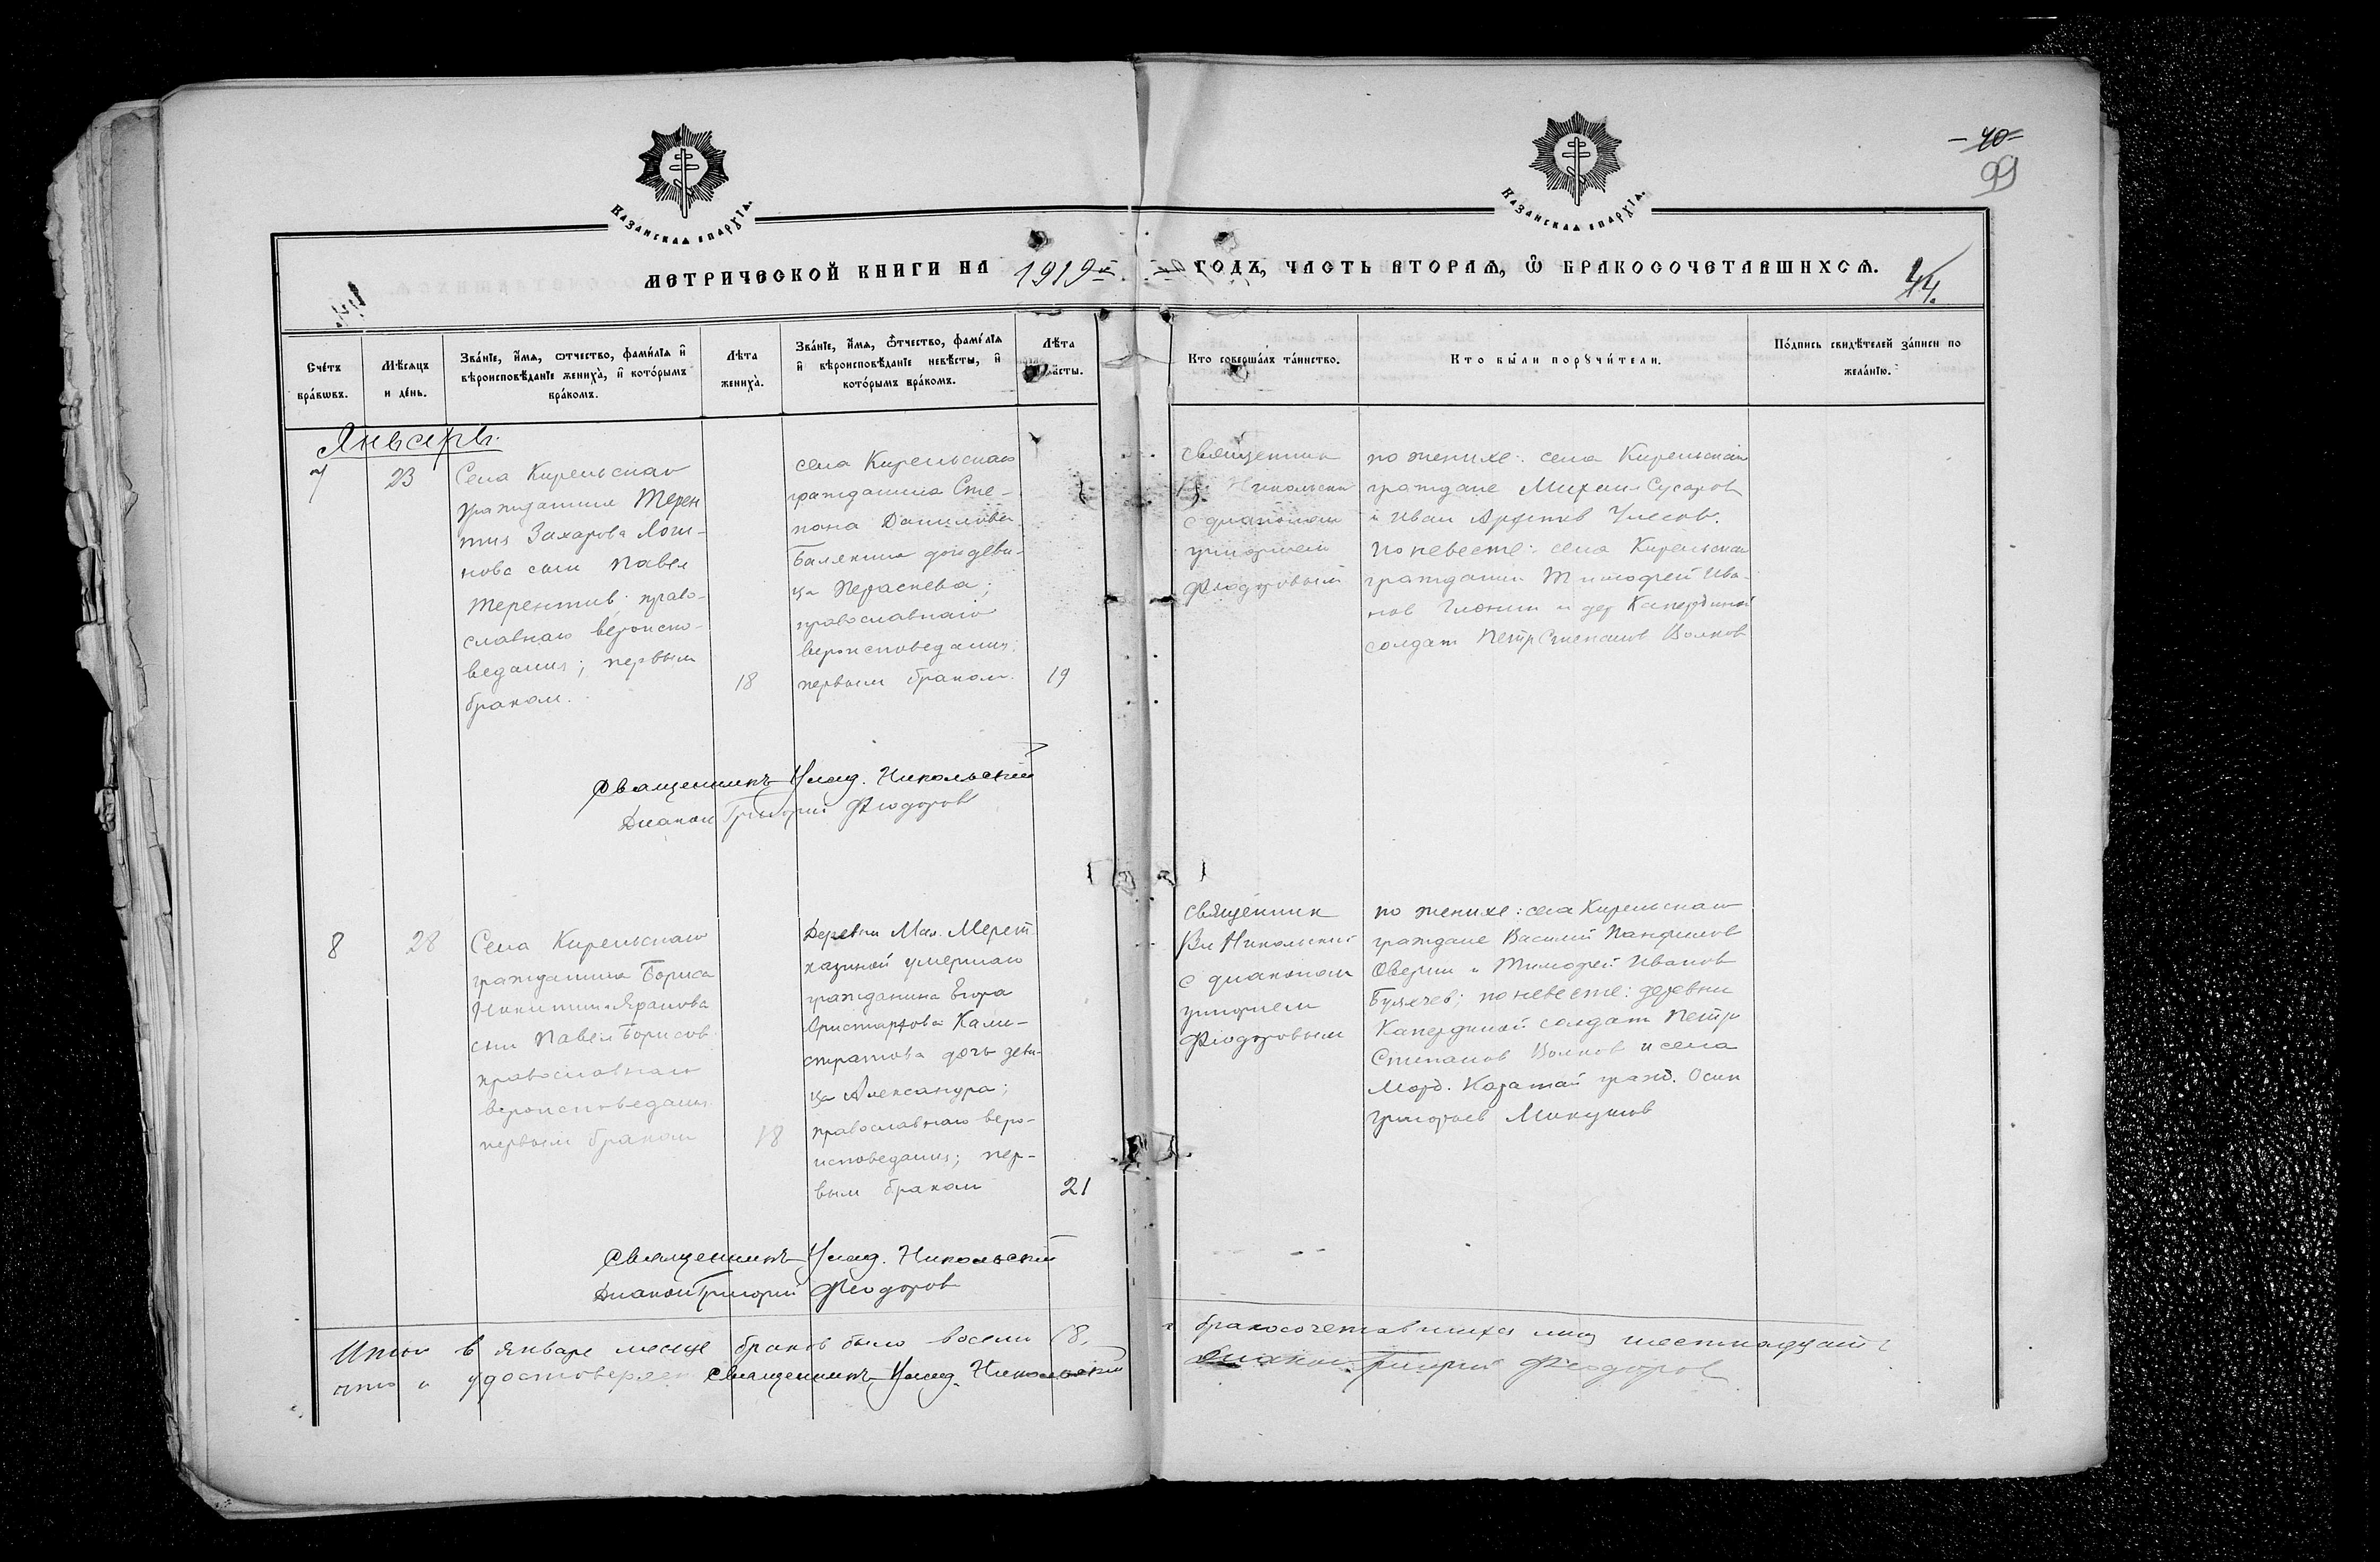 Казанская епархїа.
Казанская епархїа.
- 40 -
99
МЕТРИЧЕСКОЙ КНИГИ НА 1919 й ГОДЪ, ЧАСТЬ ВТОРАѦ, Ѡ БРАКОСОЧЕТАВШИХСѦ.
44.
Сче́тъ бра́кѡвъ.
Мѣсѧцъ и де́нь.
Зва́нїе, и҆́мѧ, ѻтчество, фами́лїѧ и҆ вѣроисповѣ́данїе жениха̀, и҆ кото́рымъ бра́комъ.
Лѣта жениха̀.
Зва́нїе, и҆́мѧ, ѻтчество, фами́лїѧ и҆ вѣроисповѣ́данїе невѣ́сты, и҆ кото́рымъ бра́комъ.
Лѣта
Кто соверша́лъ та́инство.
Кто бы́ли порꙋчи́тели.
По́дпись свидѣ́телей за́писи по жела́нїю.
Январь.
7
23
Села Кирельскаго
гражданина Терен
тия Захарова Логи-
нова сын Павел
Терентьев; право-
славнаго вероиспо-
ведания; первым
браком.
18
села Кирельскаго
гражданина Сте-
пана Данилова
Балякина дочь деви-
ца Параскева;
православнаго
вероисповедания;
первым браком.
19
Священник
Никольский
с диаконом
Григорием
Феодоровым
по женихе: села Кирельскаго
граждане Михаил Сухоров
и Иван Арефьев
По невесте: села Кирельскаго
гражданин Тимофей Ива-
нов и дер Капердиной
солдат Петр Степанов Волков
Священникъ Влад. Никольский
Диакон Григорий Феодоров
8
28
Села Кирельскаго
гражданина Бориса
Никитина
сын Павел Борисов
православнаго
вероисповедания
первым браком
18
Деревни Мал. Мерет
казиной умершаго
гражданина Егора
Аристархова Кали-
стратова дочь деви-
ца Александра;
православнаго веро-
исповедания; пер-
вым браком
21
Священник
Вл Никольский
с диаконом
Григорием
Феодоровым
по женихе: села Кирельскаго
граждане Василий Панфилов
Оверин и Тимофей Иванов
по невесте: деревни
Капердиной солдат Петр
Степанов Волков и села
Морд. Каратай гражд. Осип
Григорьев Микушов
Священникъ Влад. Никольский
Диакон Григорий Феодоров
Итого в январе месяце браков было восемь (8. бракосочетавшихся лиц шестнадцать
что и удостоверяем Священникъ Влад. Никольский Диакон Григорий Феодоров